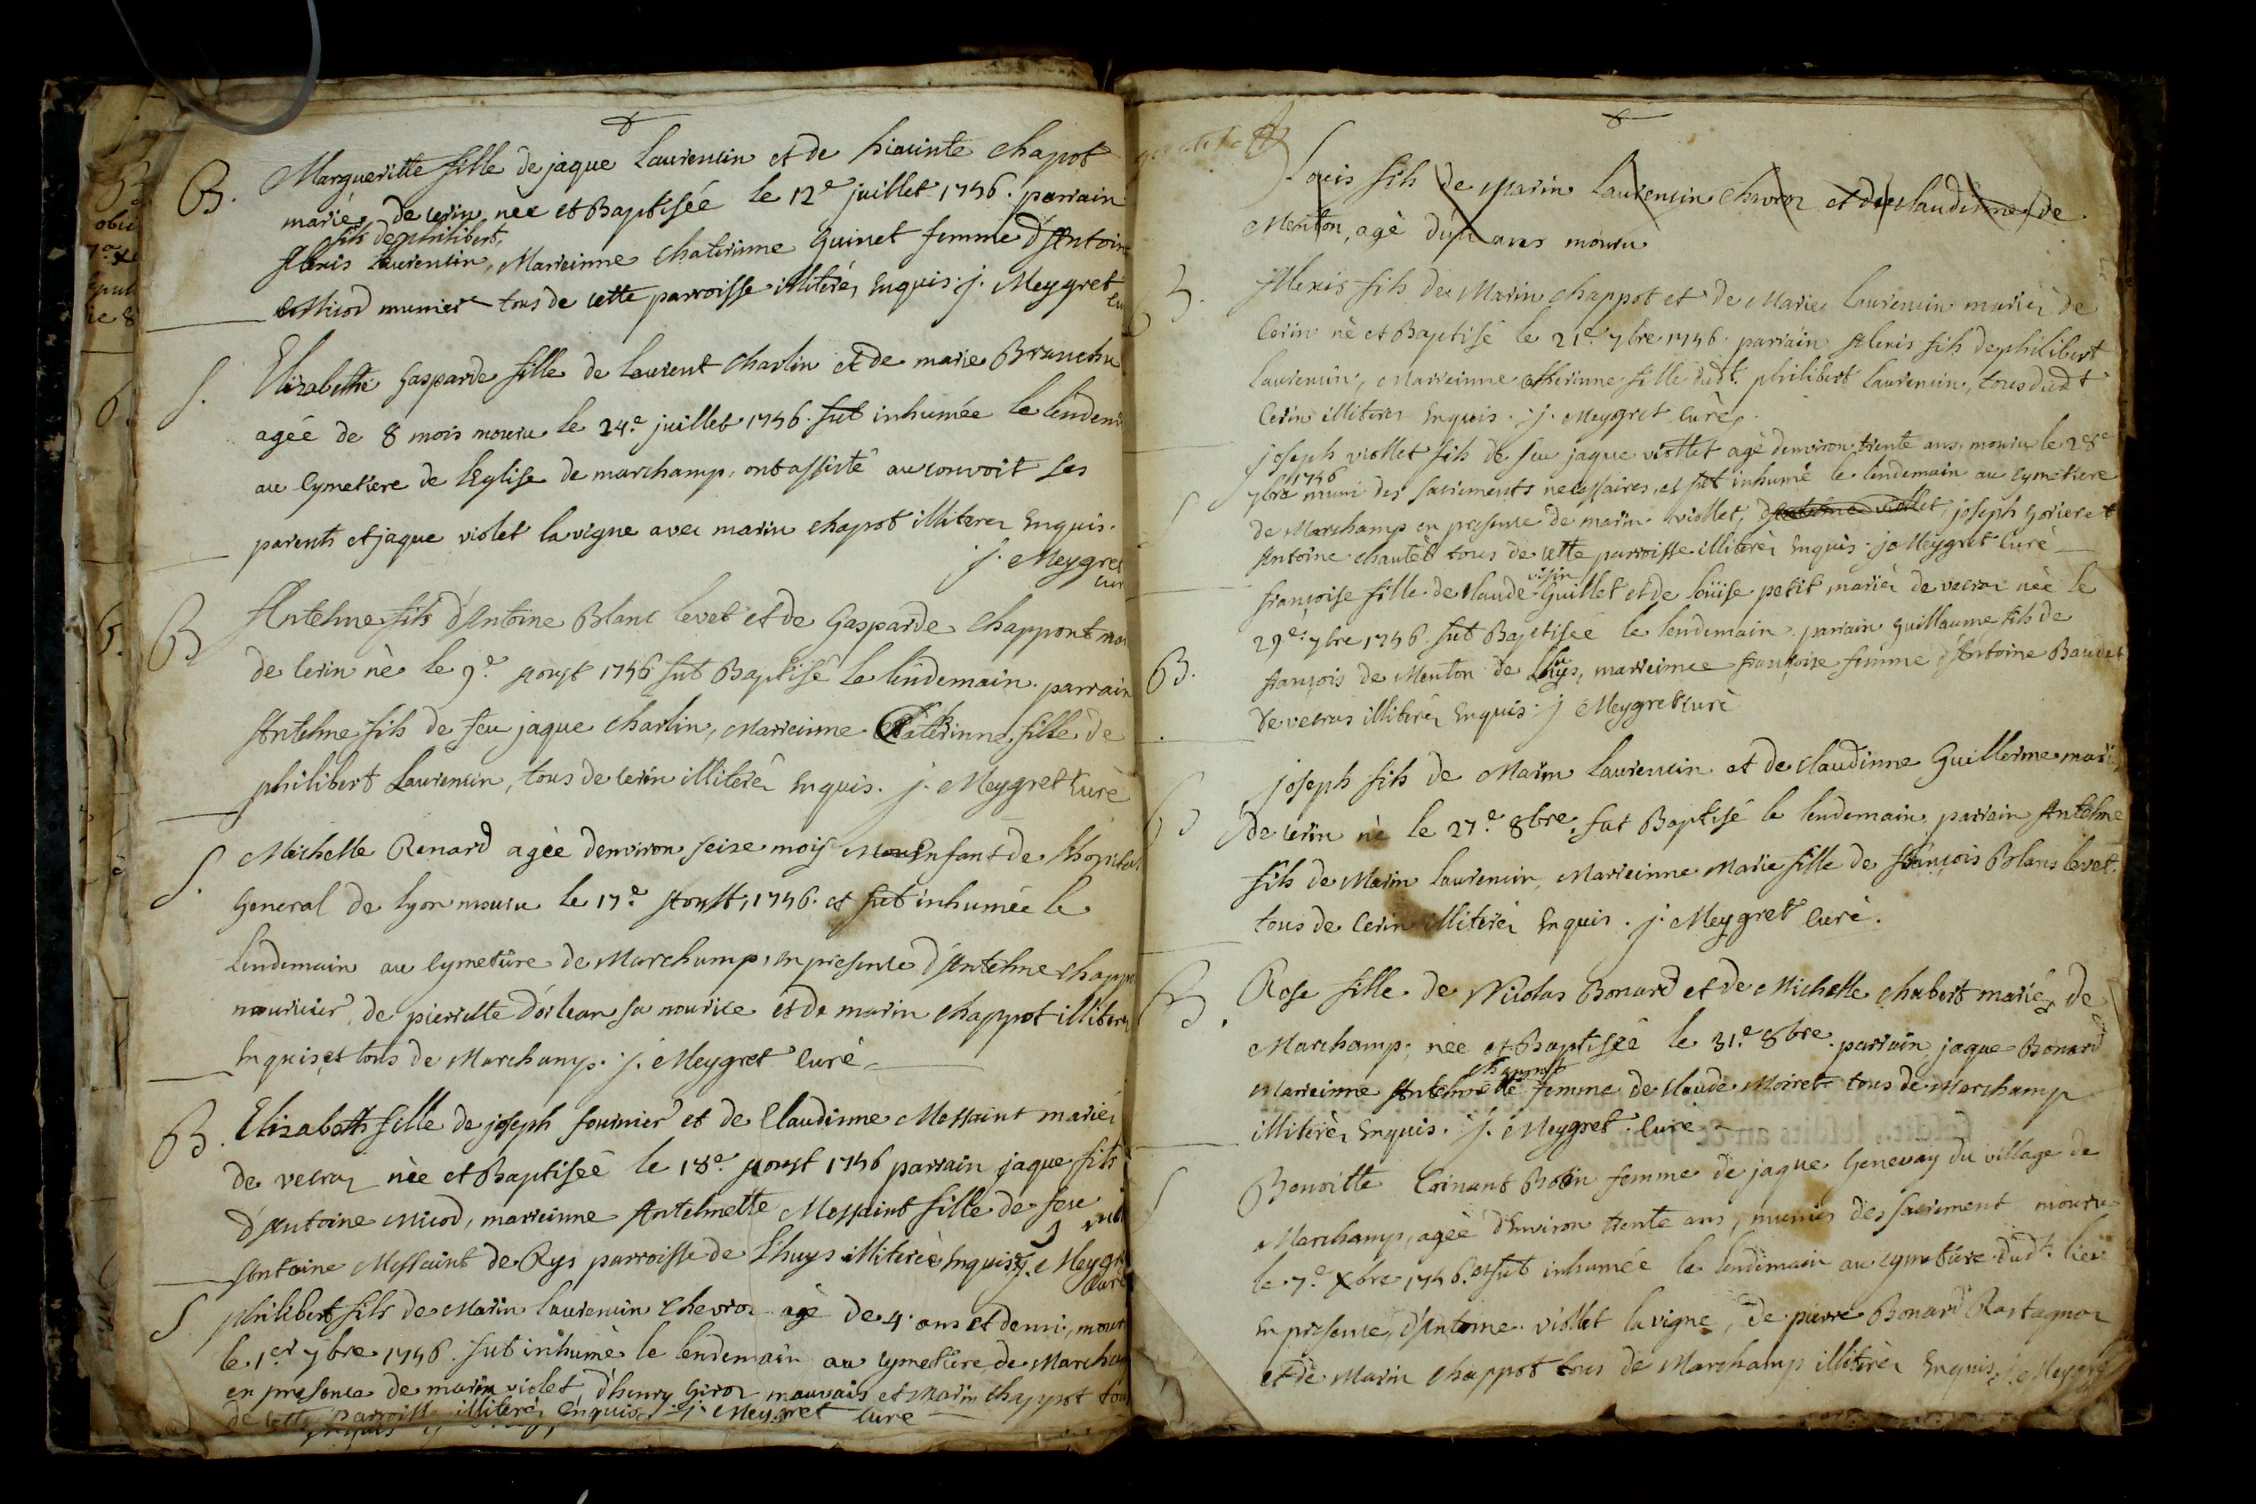 B. Margueritte fille de jaque Laurencin et de hiacinte chapot
mariés de cerin née et Baptisée le 12e juillet 1756. parrain
fils de philibert,
Alexis Laurencin, Marreinne Chaterinne Guinet femme d'Antoine
Micod munier tous de cette parroisse illiterés enquis. j. Meygret
S. Elizabethe Gasparde fille de Laurent Charlin et de marie Brunchu
agée de 8 mois mouru le 24e juillet 1756. fut inhumée le lendem
au Cymetiere de l'Eglise de marchamp, ont assisté au convoit ses
parents et jaque violet lavigne avec marin chapot illiterés enquis.
j. Meygret
cur
B Antelme fils d'Antoine Blanc levet et de Gasparde Chappont mar
de Cerin né le 9e Aoust 1756 fut Baptisé le lendemain. parrain
Antelme fils de feu jaque Charlin, Marreinne Catérinne fille de
philibert Laurencin, tous de cerin illiterés enquis. j. Meygret Curé
S. Michelle Renard agée denviron seise mois enfant de lhopital
General de lyon mouru le 17e Aoust, 1756. et fut inhumée le
lendemain au Cymetiere de Marchamp, en presence d'Antelme Chapp
nouricier de pierrette d'orlean sa nourice et de marin chappot illiterés
enquis, et tous de Marchamp. j. Meygret Curé
B. Elizabeth fille de joseph fournier et de Claudinne Messaint mariés
de vecroz née et Baptisée le 18e Aoust 1756 parrain jaque fils
d'Antoine Micod, marreinne Antelmette Messaint fille de feu
Antoine Messaint de Rys parroisse de Lhuys illiterés enquis. j. Meygret
curé
S philibert fils de Marin Laurencin Chevroz agé de 4 ans et demi, mouru
le 1er 7bre 1756. fut inhumé le lendemain au cymetiere de Marcham
en presence de marin violet, d'henry Giroz mauvais et Marin Chappot tous
de cette parroisse illiterés enquis. j. Meygret Curé
Louis fils de Marin Laurencin Chevroz et de claudinne de
Menton, agé d'un ans mouru
B. Alexis fils de Marin Chappot et de Marie Laurencin mariés de
Cerin né et Baptisé le 21e 7bre 1756. parrain Alexis fils de philibert
Laurencin, Marreinne Catherinne fille dudt. philibert Laurencin, tous dudt
Cerin illiterés enquis. j. Meygret Curé.
joseph viollet fils de feu jaque viollet agé denviron trente ans, mouru le 28e
1756
S 7bre muni des sacrements necessaires, et fut inhumé le lendemain au cymetiere
de Marchamp en presence de marin viollet, joseph Goriere et
Antoine chautet tous de cette parroisse illiterés enquis. j. Meygret Curé
visin
françoise fille de Claude Guillet et de loüise petit mariés de vecroz née le
B. 29e 7bre 1756. fut Baptisée le lendemain. parrain Guillaume fils de
françois de Menton de Lhuys, marreinne françoise femme d'Antoine Baudet
de vecroz illiterés enquis. j Meygret curé
B joseph fils de Marin Laurencin et de Claudinne Guillerme mariés
de cerin né le 27e 8bre. fut Baptisé le lendemain. parrain Antelme
fils de Marin Laurencin, Marreinne Marie fille de françois Blanc levet.
tous de Cerin illiterés enquis. j. Meygret Curé.
B. Rose fille de Nicolas Bonard et de Michelle Chabert mariés de
Marchamp, née et Baptisée le 31e 8bre. parrain jaque Bonard
Chappot
Marreinne Antelmette femme de Claude Moiret tous de Marchamp
illiterés enquis. j. Meygret Curé
S Benoitte Coinant Bobin femme de jaque Genevay du village de
Marchamp, agée d'environ trente ans, munies des sacrement mouru
le 7e Xbre 1756. et fut inhumée le lendemain au cymetiere dudt. lieu
en presence, d'Antoine viollet lavigne, de pierre Bonard Rastagnoz
et de Marin Chappot tous de Marchamp illiterés enquis. j. Meygret